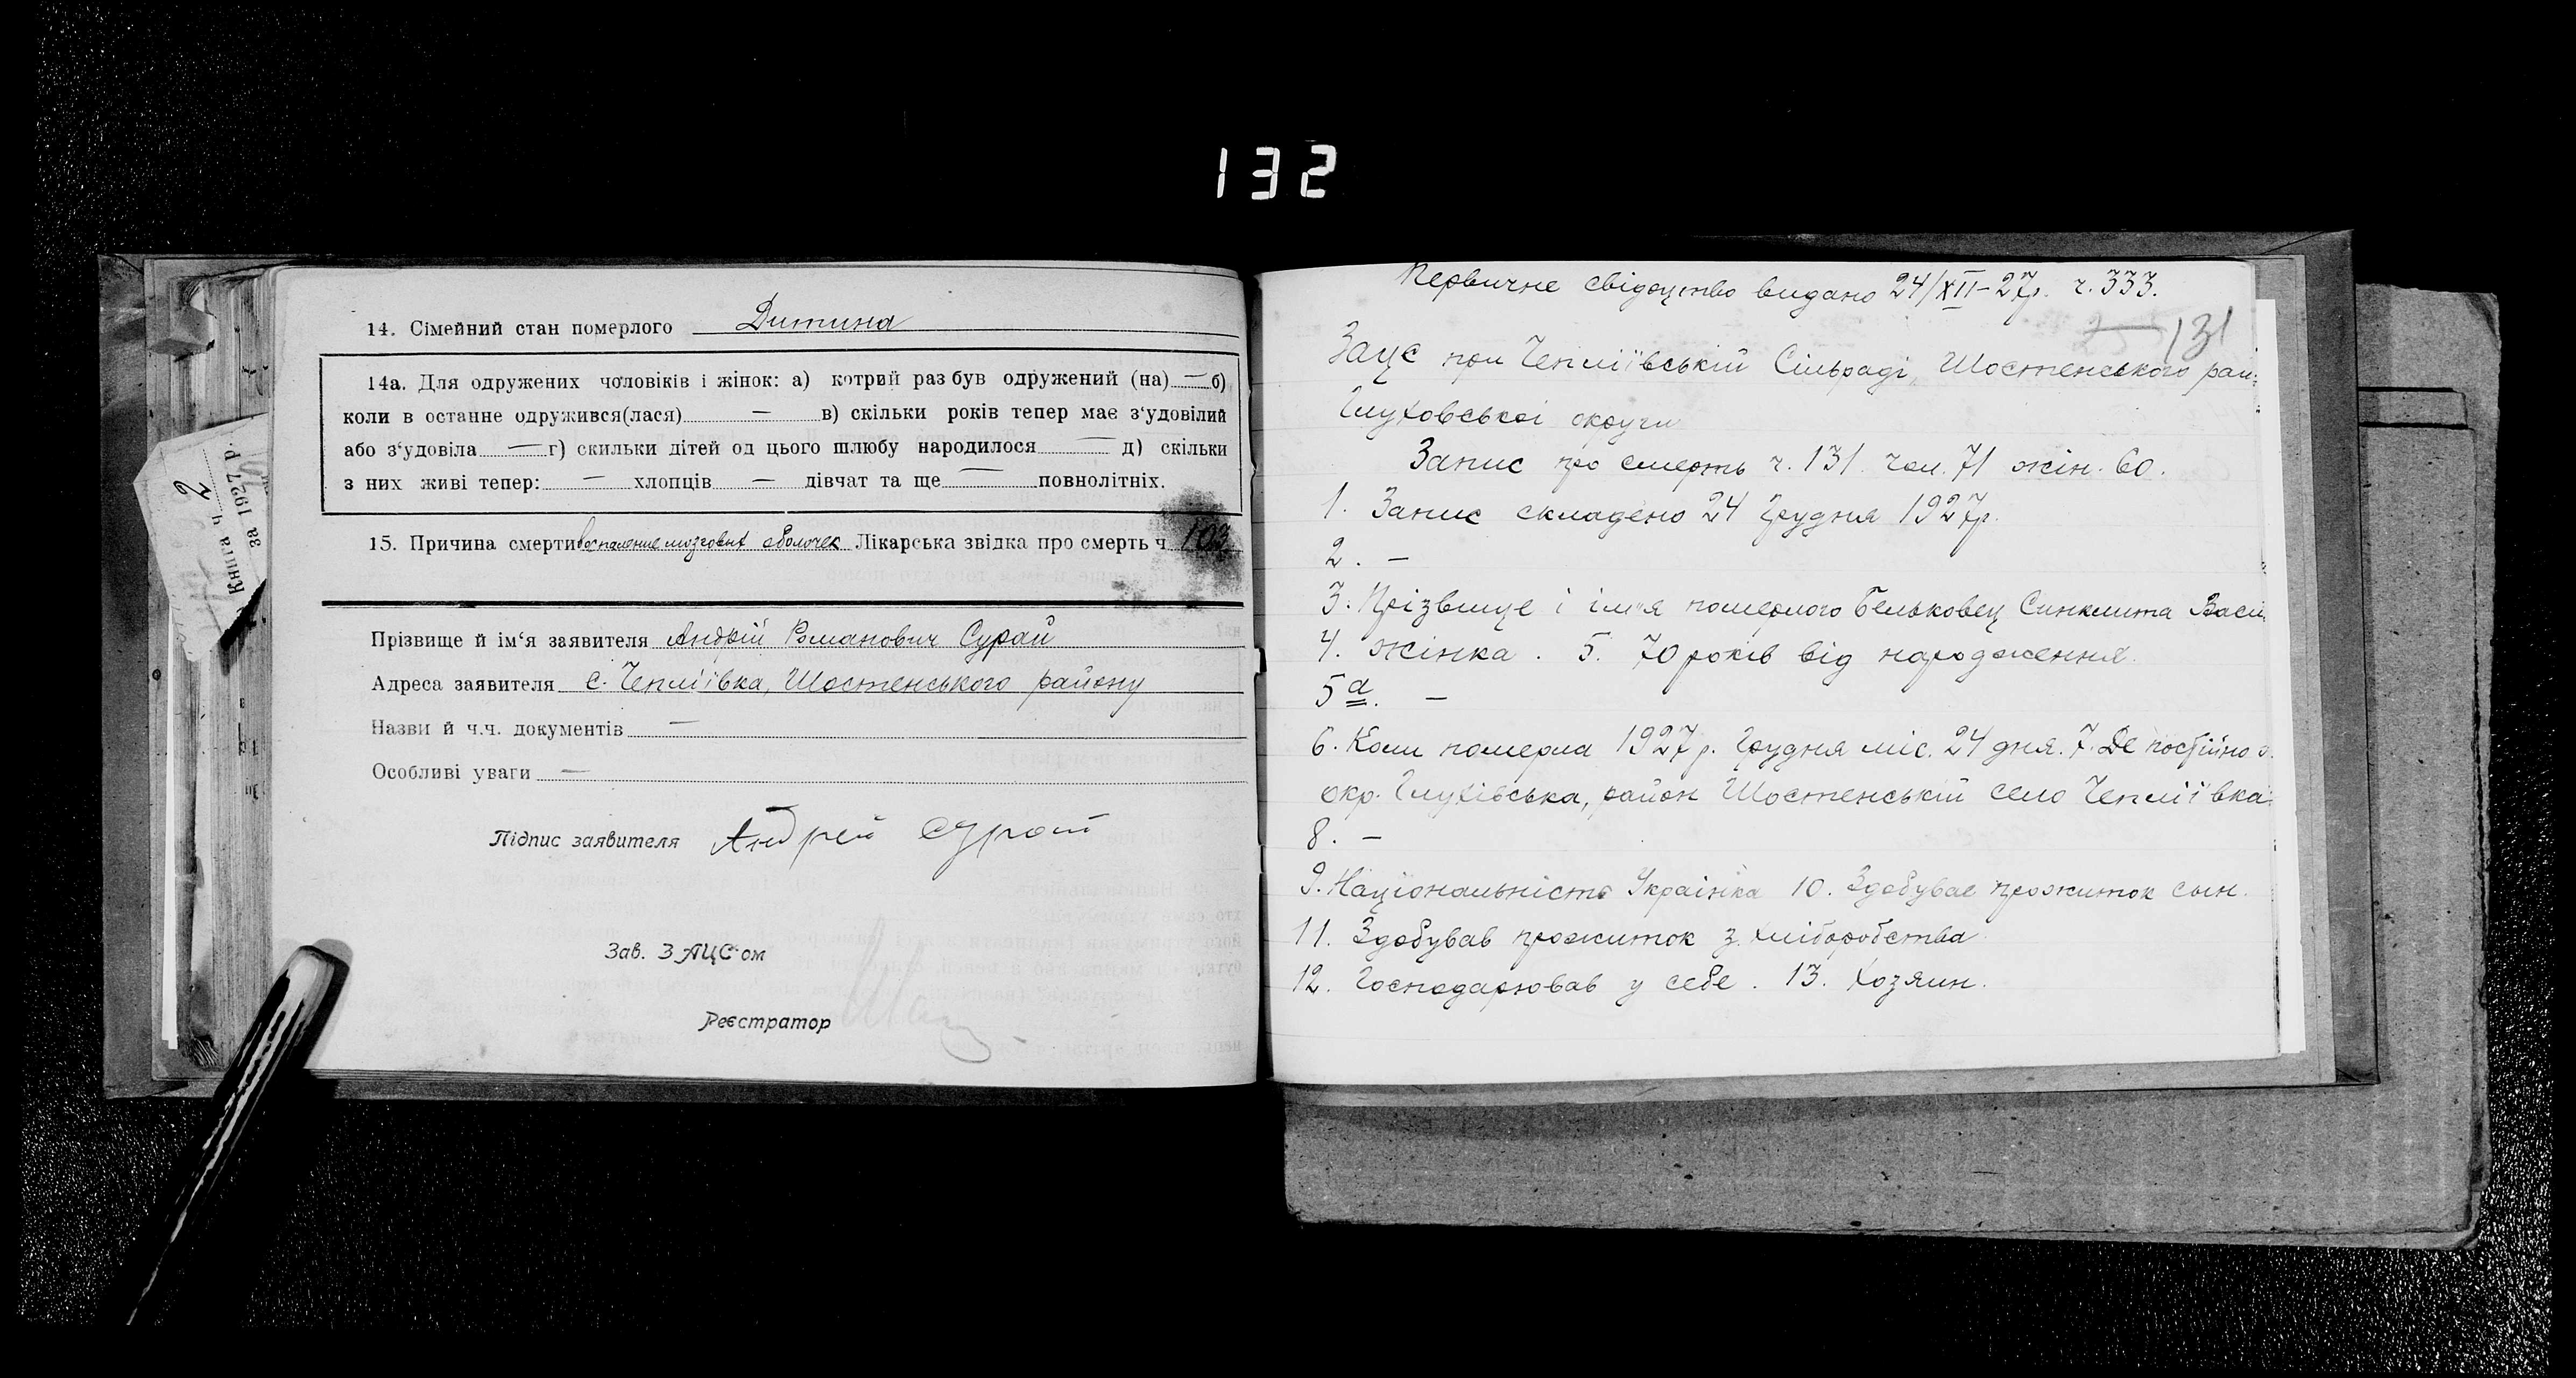 132
14. Сімейний стан померлого Дитина
14а. Для одружених чоловіків і жінок: а) котрий раз був одружений (на) — б)
коли в останне одружився(лася) — в) скільки років тепер має з‘удовілий
або з‘удовіла — г) скильки дітей од цього шлюбу народилося — д) скільки
з них живі тепер: — хлопців — дівчат та ще — повнолітніх.
15. Причина смерти воспаление мозговых оболочек Лікарська звідка про смерть ч 103
Прізвище й ім‘я заявителя Андрій Романович Сурай
Адреса заявителя с. Чепліївка, Шостенського району
Назви й ч.ч. документів —
Особливі уваги —
Підпис заявителя Андрей Сурай
Зав. ЗАЦС-ом
Реєстратор
Книга ч 2
за 1927 р.
Первичне свідоцтво видано 24/XII-27р. ч. 333.
131
Зацс при Чепліївській Сільраді, Шостенського рай.
Глуховської округи
Запис про смерть ч. 131 чол. 71 жін. 60.
1. Запис складено 24 Грудня 1927р.
2. —
3. Прізвище і ім'я померлого Бельковец Синклита Васи
4. жінка. 5. 70 років від народження.
5а. —
6. Коли померла 1927 р. Грудня міс. 24 дня. 7. Де постійно
окр. Глухівська, район Шостенській село Чепліївка
8. —
9. Національність Українка 10. Здобувае прожиток сын.
11. Здобував прожиток з хліборобства
12. Господарював у себе. 13. Хозяин.